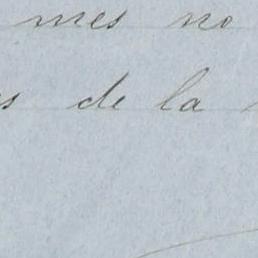 mes no
s de la